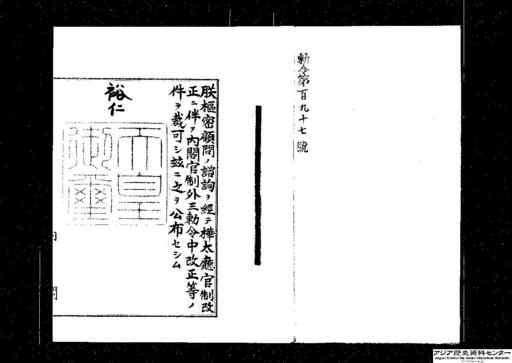 勅令第百九十七號
朕樞密顧問ノ諮詢ヲ經テ樺太廳官制改
正ニ伴フ內閣官制外三勅令中改正等ノ
件ヲ裁可シ茲ニ之ヲ公布セシム
裕仁
天皇
御璽
內閣
アジア歴史資料センター
Japan Center for Asian Historical Records